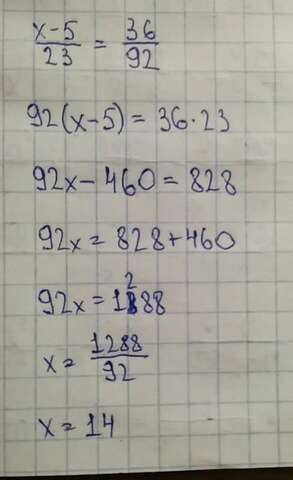 x-5/23 = 36/92
92(x-5) = 36·23
92x - 460 = 828
92x = 828+460
92x = 1288
x = 1288/92
x = 14